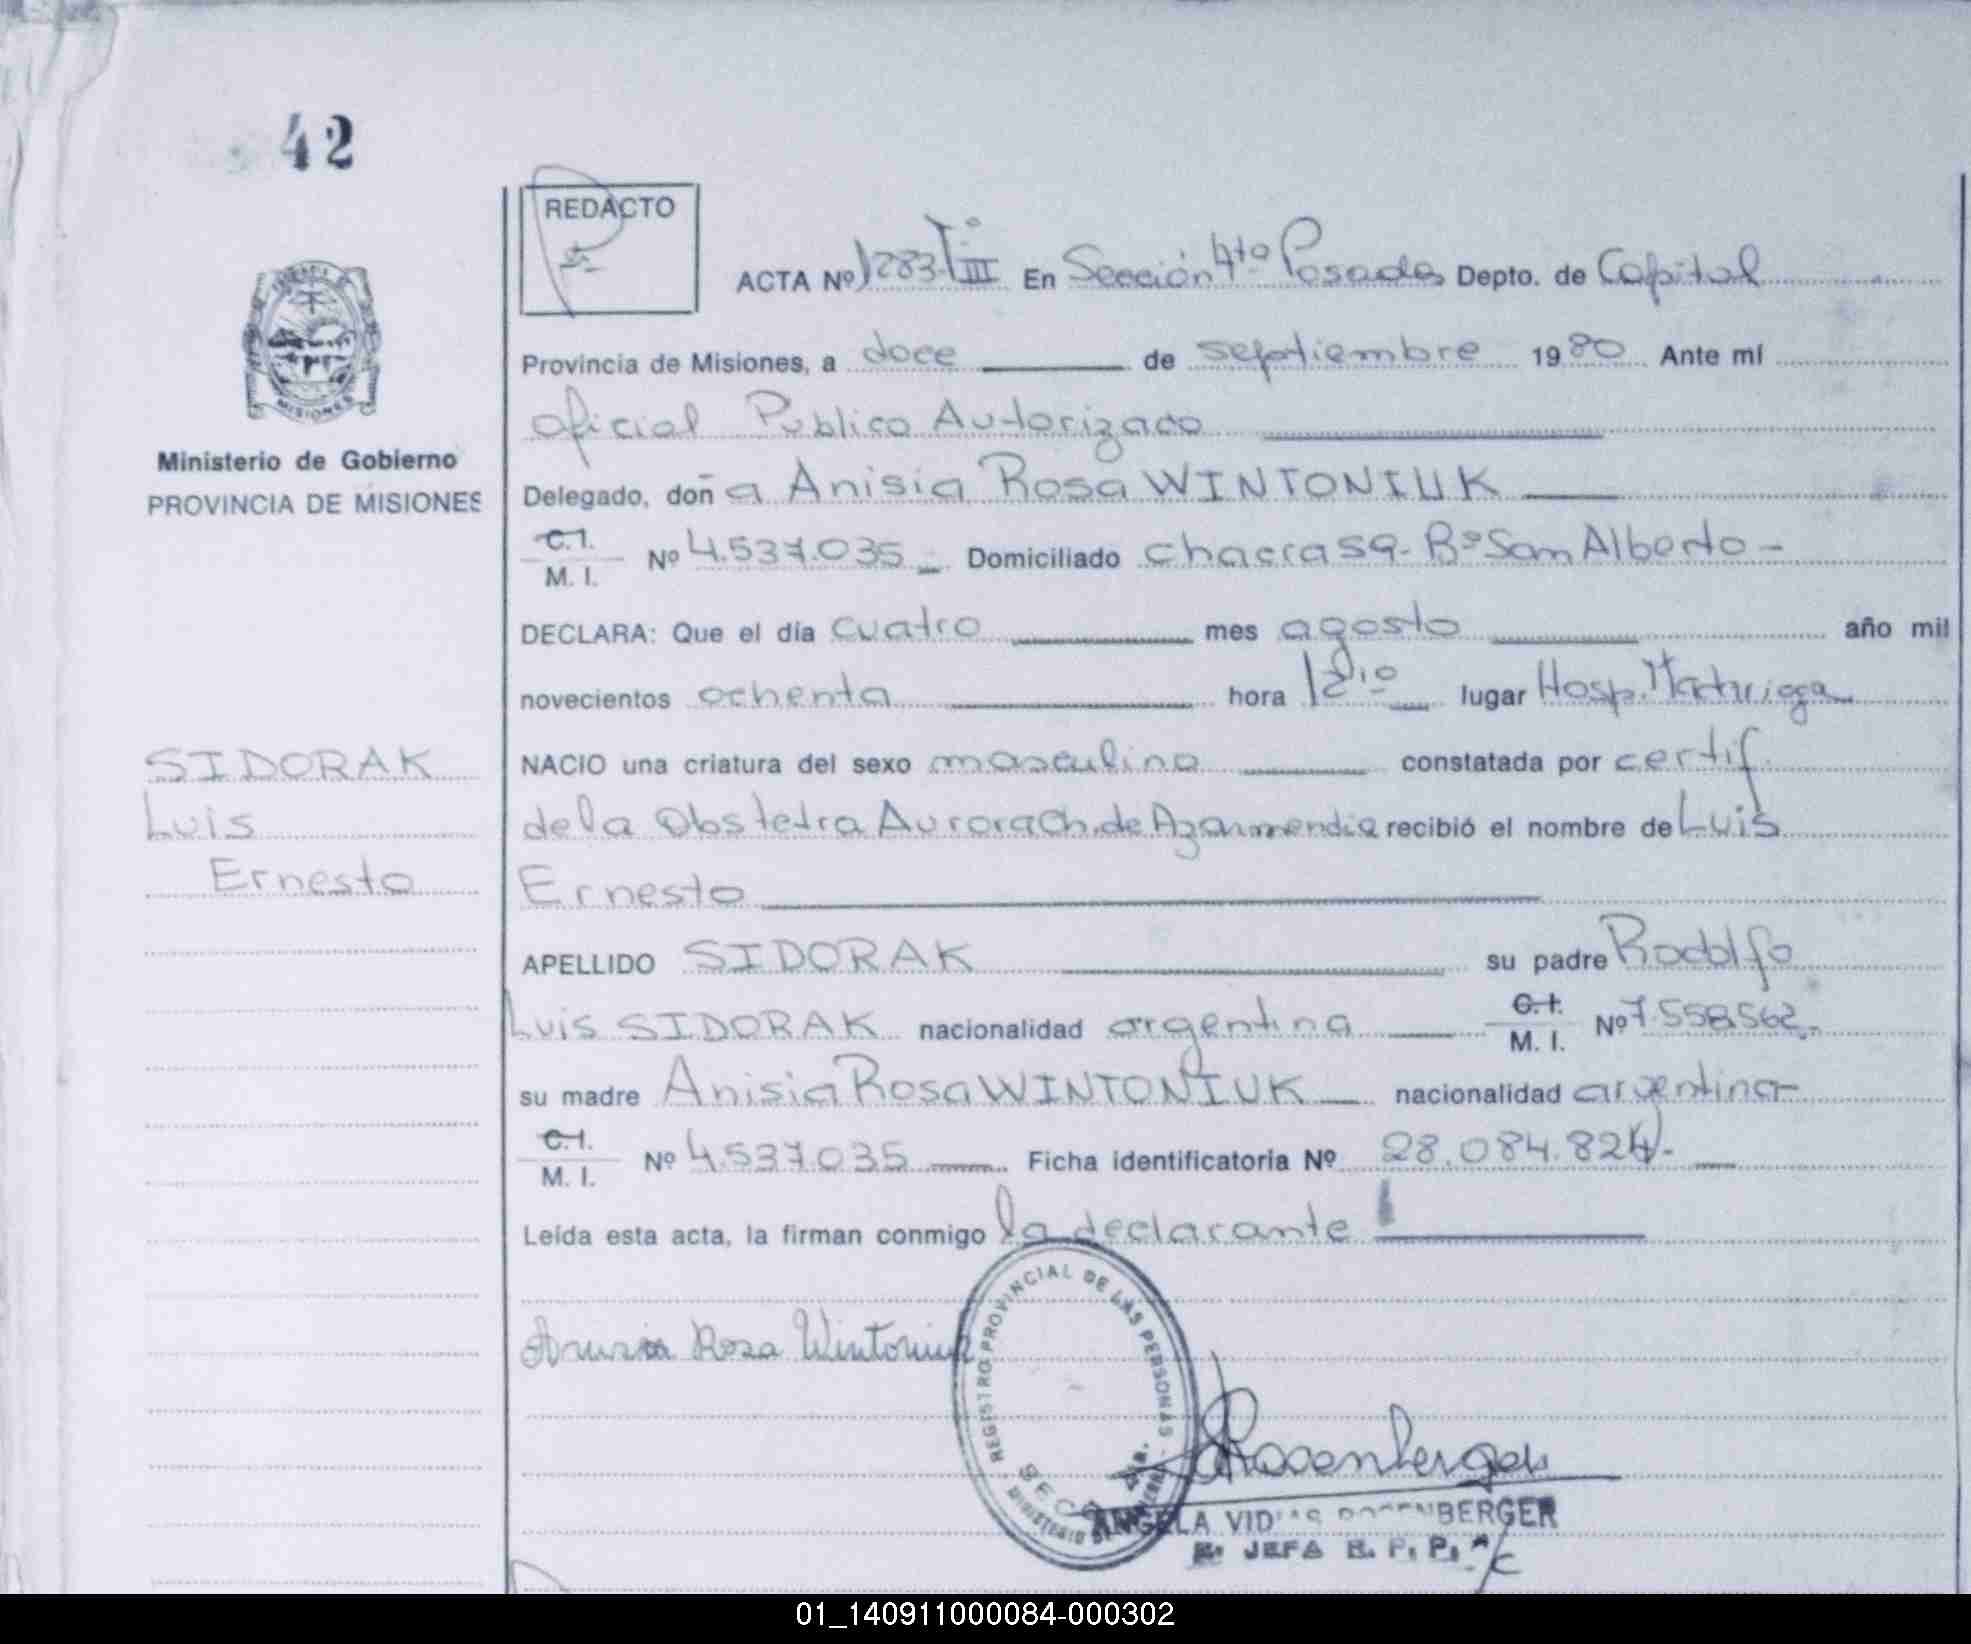 42
REDACTO
ACTA Nº 1283 Tº III En Sección 4ta Posadas Depto. de Capital
MISIONES
Provincia de Misiones, a doce de septiembre 1980 Ante mí
oficial Publico Autorizado
Ministerio de Gobierno
PROVINCIA DE MISIONES
Delegado, doña Anisia Rosa WINTONIUK
C.I.
M. I. Nº 4.537.035 Domiciliado chacra 59 - Bº San Alberto -
DECLARA: Que el día cuatro mes agosto año mil
novecientos ochenta hora 12,10 lugar Hosp. Madariaga
SIDORAK
NACIO una criatura del sexo masculino constatada por certif.
Luis
de la Obstetra Aurora Ch. de Azarmendia recibió el nombre de Luis
Ernesto
Ernesto
APELLIDO SIDORAK su padre Rodolfo
Luis SIDORAK nacionalidad argentina C.I. M. I. Nº 7.558.562.-
su madre Anisia Rosa WINTONIUK nacionalidad argentina-
C.I.
M. I. Nº 4.537.035 Ficha identificatoria Nº 28.084.824.-
Leída esta acta, la firman conmigo la declarante
REGISTRO PROVINCIAL DE LAS PERSONAS
Anisia Rosa Wintoniuk
Rosenberger
MINISTERIO DE
ANGELA ROSENBERGER
JEFA R. P. P. A/C
01_140911000084-000302